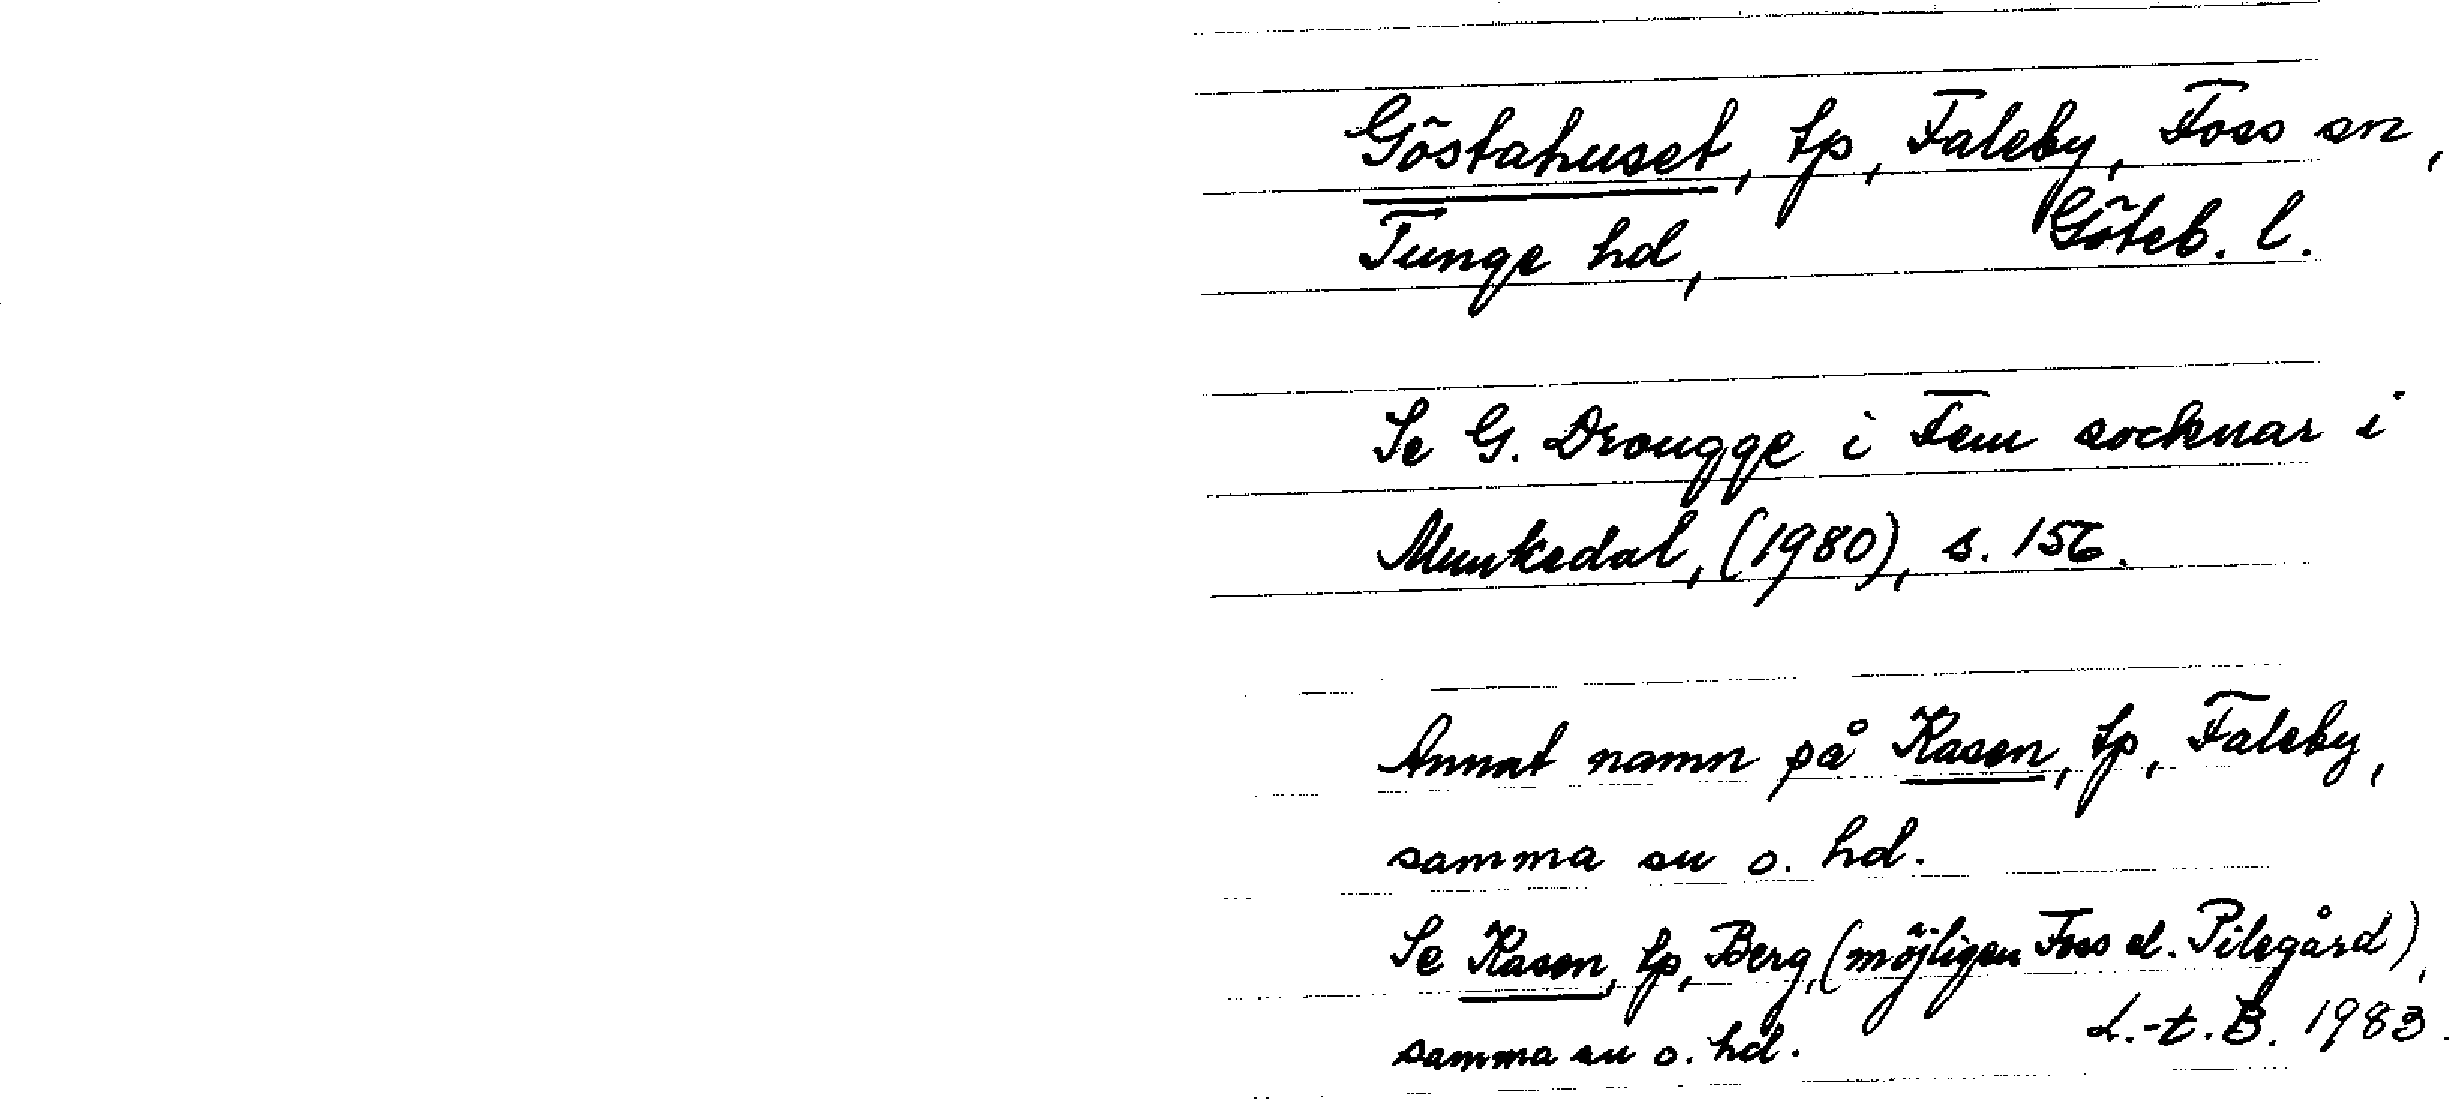 Göstahuset, tp, Faleby, Foss sn,
Tunge hd, Göteb. l.
Se G. Drougge i Fem socknar i
Munkedal, (1980), s. 156.
Annat namn på Kasen, tp, Faleby,
samma sn o. hd.
Se Kasen, tp, Berg, (möjligen Foss el. Pilegård),
samma sn o. hd. L.-t. B. 1983.